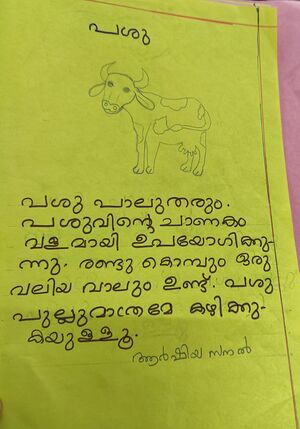 പശു
പശു പാലുതരും.
പശുവിന്റെ ചാണകം
വളമായി ഉപയോഗിക്കു-
ന്നു. രണ്ടു കൊമ്പും ഒരു
വലിയ വാലും ഉണ്ട്. പശു
പുല്ലുമാത്രമേ കഴിക്കു-
കയുള്ളൂ.
ആർഷിയ സനൽ